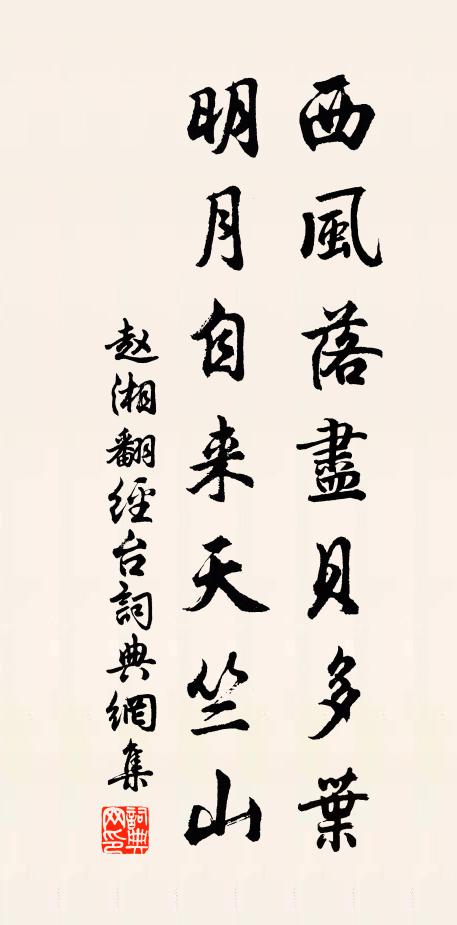 西風落盡貝多葉
明月自来天竺山
赵湘翻經台詞典網集
詞典
网印